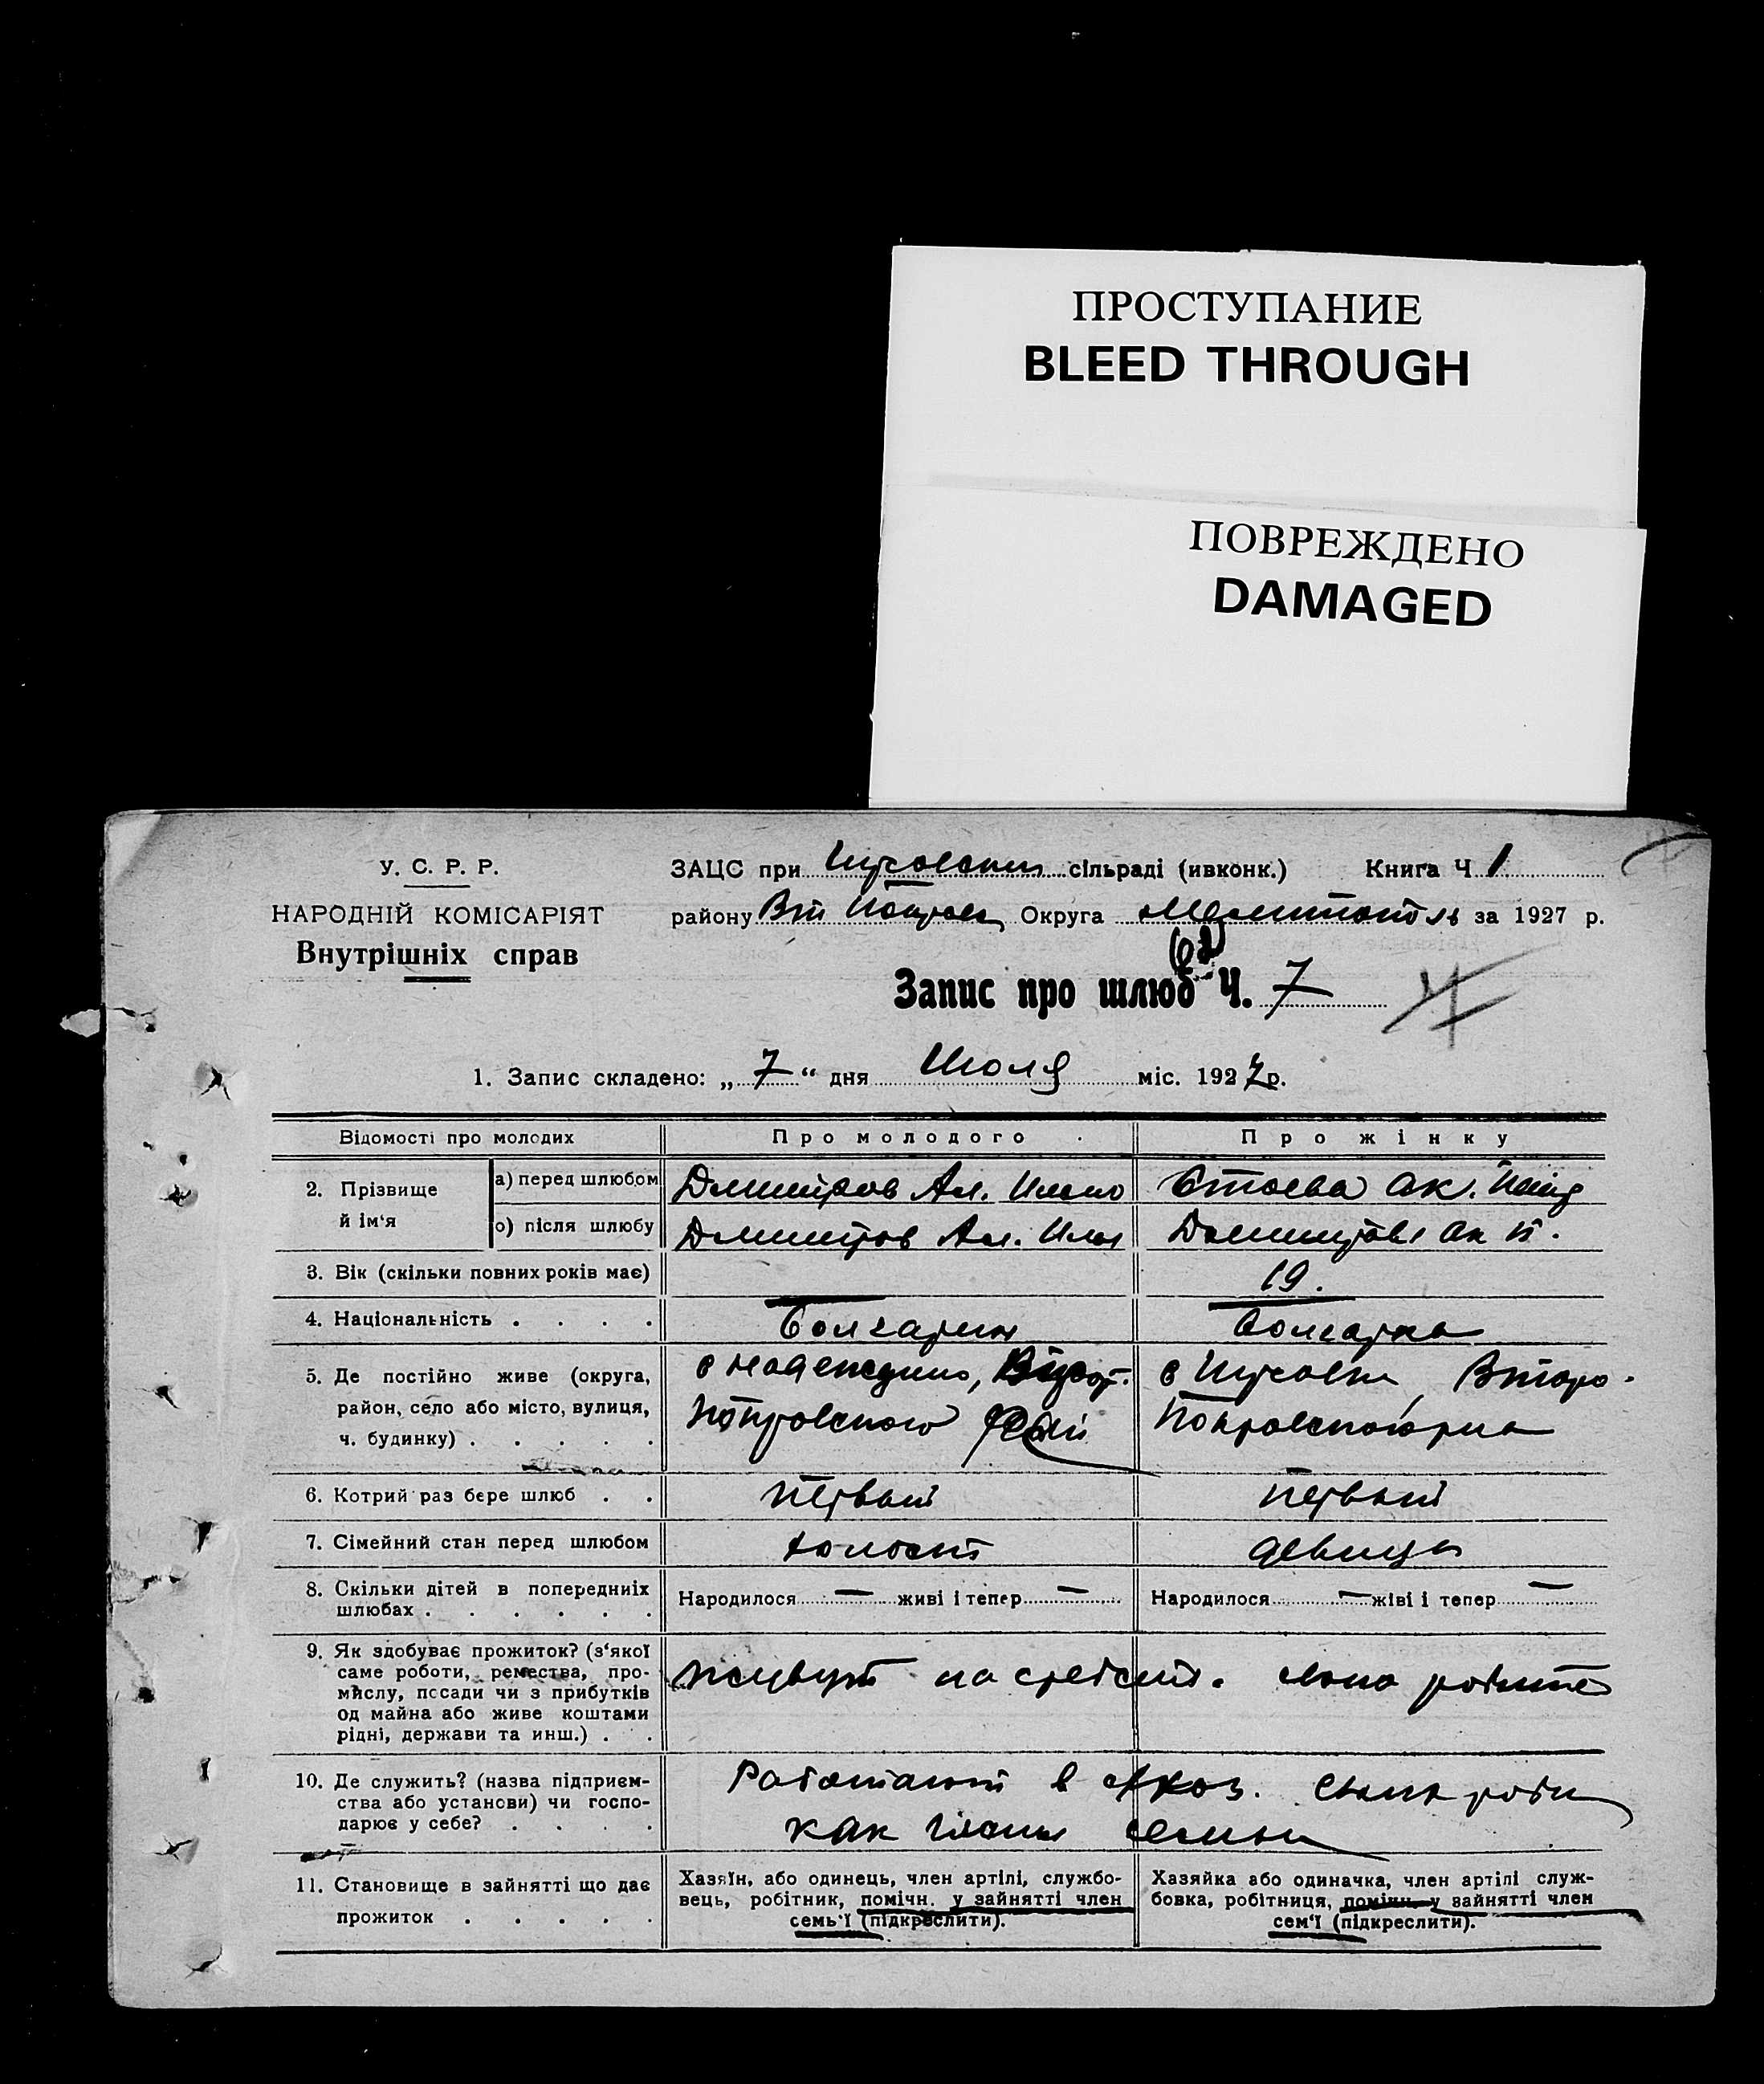 ПРОСТУПАНИЕ
BLEED THROUGH
ПОВРЕЖДЕНО
DAMAGED
У. С. Р. Р.
НАРОДНІЙ КОМІСАРІЯТ
Внутрішніх справ
ЗАЦС при сільраді (ивконк.) Книга Ч 1
району Округа за 1927 р.
Запис про шлюб Ч. 7
1. Запис складено: „7“ дня Июля міс. 1927 р.
Відомості про молодих
Про молодого
Про жінку
2. Прізвище й ім‘я
а) перед шлюбом
Димитров Ал.
Ак.
о) після шлюбу
Димитров Ал.
Ак
3. Вік (скільки повних років має)
19.
4. Національність . . . .
Болгарин
Болгарка
5. Де постійно живе (округа,
район, село або місто, вулиця,
ч. будинку) . . . . .
Покровского
6. Котрий раз бере шлюб . .
первый
первый
7. Сімейний стан перед шлюбом
холост
девица
8. Скільки дітей в попередниіх
шлюбах . . . . . .
Народилося — живі і тепер —
Народилося — жіві і тепер —
9. Як здобуває прожиток? (з‘якої
саме роботи, ремества, про-
мислу, посади чи з прибутків
од майна або живе коштами
рідні, держави та инш.) . .
живут на
10. Де служить? (назва підприєм-
ства або установи) чи госпо-
дарює у себе? . . . .
Работают в
как члены семьи
11. Становище в зайнятті що дає
прожиток . . . . .
Хазяїн, або одинець, член артілі, службо-
вець, робітник, помічн. у зайнятті член
семь‘ї (підкреслити).
Хазяйка або одиначка, член артілі служ-
бовка, робітниця, помічн. у зайнятті член
сем‘ї (підкреслити).